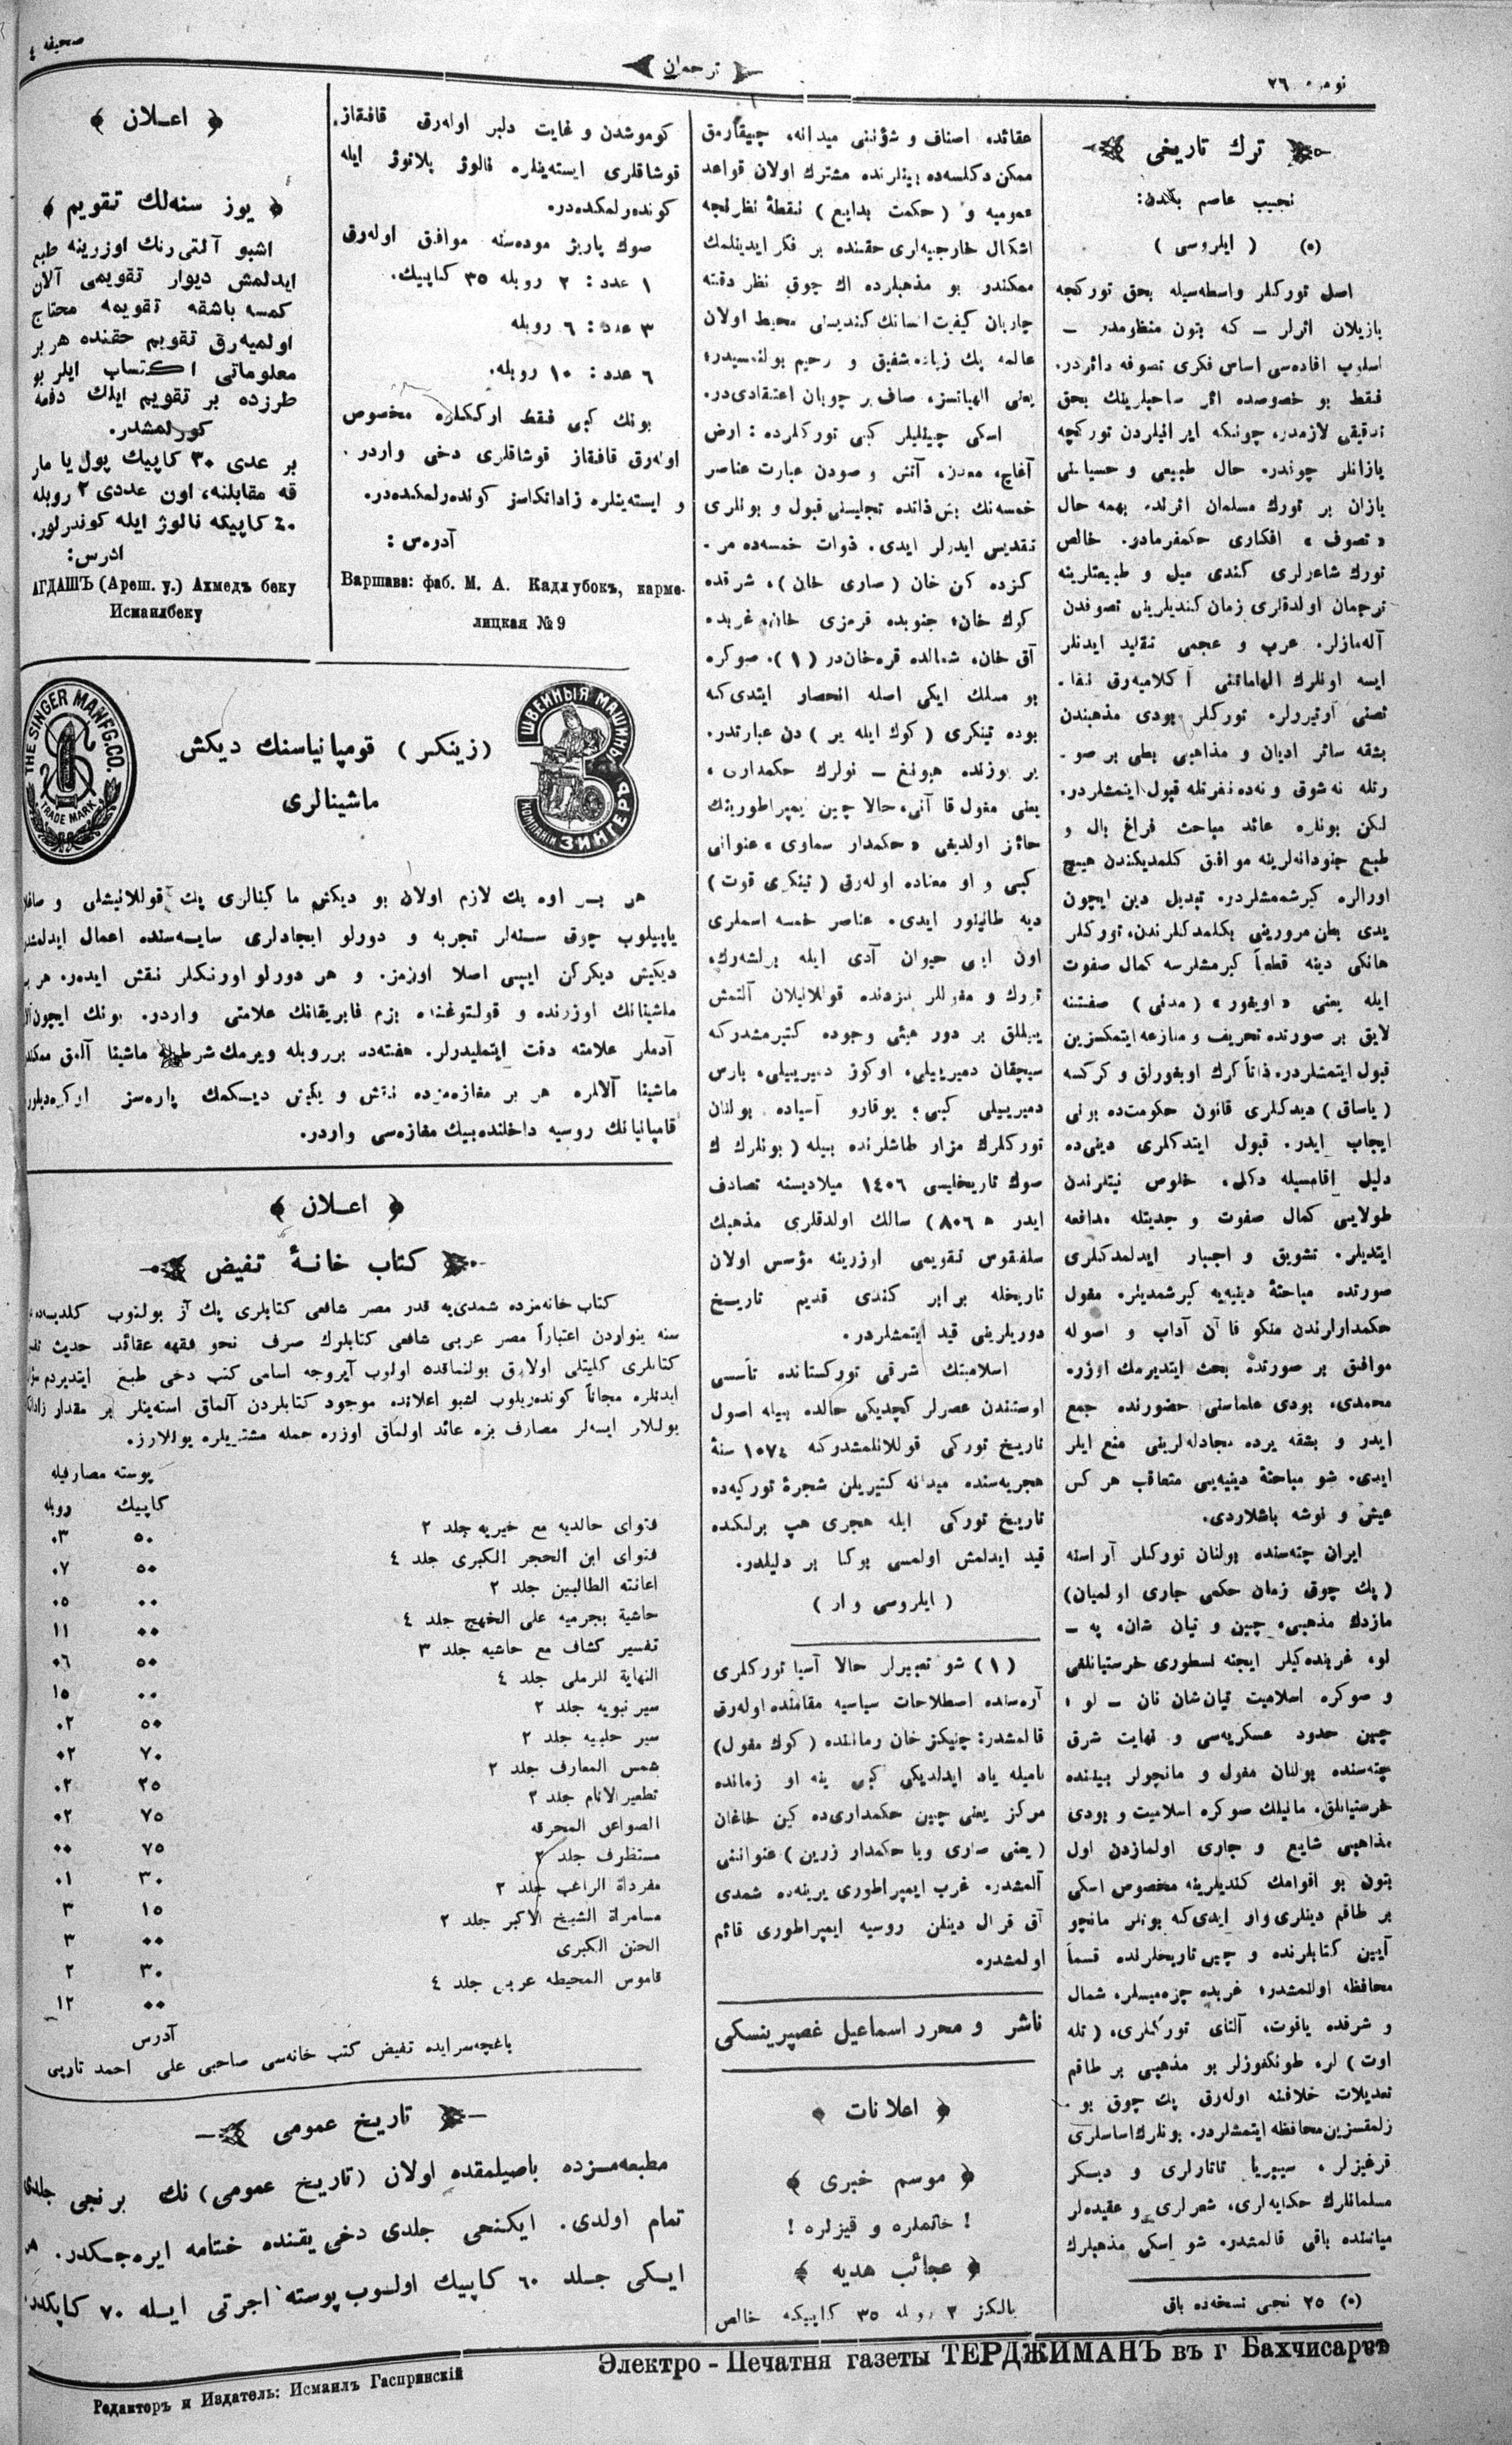 نومرو ٢٦
ترجمان
صحيفه ٤
ترك تاريخى
نجيب عاصم بكدن:
(٥) ( ايلروسى )
اصل توركلر واسطه‌سيله بحق توركجه
يازيلان اثرلر ـ كه بتون منظومدر ـ
اسلوب افاده‌سى اساس فكرى تصوفه دائردر.
فقط بو خصوصده اثر صاحبلرينك بحق
تدقيقى لازمدر، چونكه ايرانيلردن توركچه
يازانلر چوندر. حال طبيعى و حسياتنى
يازان بر تورك مسلمان اثرنده بهمه حال
« تصوف » افكارى حكمفرمادر. خالص
تورك شاعرلرى كندى ميل و طبيعتلرينه
ترجمان اولدقلرى زمان كنديلرينى تصوفدن
آله‌مازلر. عرب و عجمى تقليد ايدنلر
ايسه اونلرك الهاماتنى آكلاميه‌رق
توركلر بودى مذهبندن
بشقه سائر اديان و مذاهبى بطى بر صو ـ
رتله نه شوق و نه‌ده نفرتله قبول ايتمشلردر.
لكن بونلره عائد مباحث فراغ بال و
طبع جنودانه‌لرينه موافق كلمديكندن هيچ
اورالره كيرشممشلردر. تبديل دين ايچون
يدى بطن مرورينى بكلمدكلرندن، توركلر
هانكى دينه قطعاً كيرمشلرسه كمال صفوت
ايله يعنى « اويغور » ( مدنى ) صفتنه
لايق بر صورتده تحريف و منازعه ايتمكسزين
قبول ايتمشلردر. ذاتاً كرك اويغورلق و كركسه
( ياساق ) ديدكلرى قانون حكومت‌ده بونى
ايجاب ايدر. قبول ايتدكلرى دينى‌ده
دليل اقامه‌سيله دكل، خلوص نيتلرندن
طولايى كمال صفوت و جديتله مدافعه
ايتديلر. تشويق و اجبار ايدلمدكلرى
صورتده مباحثۀ دينيه‌يه كيرشمديلر. مغول
حكمدارلرندن منكو قا آن آداب و اصوله
موافق بر صورتده بحث ايتديرمك اوزره
محمدى، بودى علماسنى حضورنده جمع
ايدر و بشقه يرده مجادله‌لرينى منع ايلر
ايدى. شو مباحثۀ دينيه‌يى متعاقب هر كس
عيش و نوشه باشلاردى.
ايران جته‌سنده بولنان توركلر آراسنه
( پك چوق زمان حكمى جارى اولميان )
مازدك مذهبى، چين و تيان شان، په ـ
لو، غربنده‌كيلر ايچنه نسطورى خرستيانلغى
و صوكره اسلاميت تيان شان نان ـ لو ؛
چين حدود عسكريه‌سى و نهايت شرق
جته‌سنده بولنان مغول و مانچولر بيننده
خرستيانلق، مانيلك صوكره اسلاميت و بودى
مذاهبى شايع و جارى اولمازدن اول
بتون بو اقوامك كنديلرينه مخصوص اسكى
بر طاقم دينلرى وار ايدى كه بونلر مانچو
آيين كتابلرنده و چين تاريخلرنده قسماً
محافظه اولنمشدر؛ غربده چره‌ميسلر، شمال
و شرقده ياقوت، آلتاى توركلرى، ( تله
اوت ) لر، طونكغوزلر بو مذهبى بر طاقم
تعديلات خلافنه اوله‌رق پك چوق بو ـ
زلمقسزين محافظه ايتمشلردر. بونلرك اساسلرى
قرغيزلر، سيبريا تاتارلرى و ديكر
مسلمانلرك حكايه‌لرى، شعرلرى و عقيده‌لر
مياننده باقى قالمشدر. شو اسكى مذهبلرك
(٥) ٢٥ نجى نسخه‌ده باق
عقائد، اصناف و شؤننى ميدانه، چيقارمق
ممكن دكلسه‌ده بينلرنده مشترك اولان قواعد
عموميه و ( حكمت بدايع ) نقطۀ نظرنجه
اشكال خارجيه‌لرى حقنده بر فكر ايدينلمك
ممكندر. بو مذهبلرده اك چوق نظر دقته
چاربان كيفيت انسانك كنديسنى محيط اولان
عالمه پك زياده شفيق و رحيم بولنمسيدر؛
يعنى الهيانسز، صاف بر چوبان اعتقادى‌در.
اسكى چينليلر كبى توركلرده : ارض
آغاچ، معدن، آتش و صودن عبارت عناصر
خمسه‌نك بش ذاتده تجليسنى قبول و بونلرى
تقديس ايدرلر ايدى. ذوات خمسه‌ده مر ـ
كزده كن خان ( صارى خان )، شرقده
كوك خان؛ جنوبده قرمزى خان، غربده
آق خان، شمالده قره‌خان‌در (١). صوكره
بو مسلك ايكى اصله انحصار ايتدى كه
بوده تينكرى ( كوك ايله ير ) دن عبارتدر.
حكمدارى،
يعنى مغول قا آنى، حالا چين ايمپراطورينك
حائز اولديغى « حكمدار سماوى » عنوانى
كبى و او معناده اوله‌رق ( تينكرى قوت )
ديه طانينور ايدى. عناصر خمسه اسملرى
اون ايكى حيوان آدى ايله برلشه‌رك،
تورك و مغوللر نزدنده قوللانيلان آلتمش
ييللق بر دور ميى وجوده كتيرمشدر كه
سيچقان دميرييلى، اوكوز دميرييلى، بارس
دميرييلى كبى؛ يوقارو آسياده بولنان
توركلرك مزار طاشلرنده بيله ( بونلرك ك
صوك تاريخليسى ١٤٠٦ ميلاديسنه تصادف
ايدر ه ٨٠٦ ) سالك اولدقلرى مذهبك
سلفقوس تقويمى اوزرينه مؤسس اولان
تاريخله برابر كندى قديم تاريخ
دوريلرينى قيد ايتمشلردر.
اسلاميتك شرقى توركستانده تأسسى
اوستندن عصرلر كچديكى حالده بيله اصول
تاريخ توركى قوللانلمشدر كه ١٠٧٤ سنۀ
هجريه‌سنده ميدانه كتيريلن شجرۀ توركيه‌ده
تاريخ توركى ايله هجرى هپ برلكده
قيد ايدلمش اولمسى بوكا بر دليلدر.
( ايلروسى وار )
(١) شو تعبيرلر حالا آسيا توركلرى
آره‌سنده اصطلاحات سياسيه مقامنده اوله‌رق
قالمشدر: چنيكز خان زماننده ( كوك مغول )
ناميله ياد ايدلديكى كبى ينه او زمانده
مركز يعنى چين حكمدارى‌ده كين خاغان
( يعنى صارى ويا حكمدار زرين ) عنواننى
آلمشدر. غرب ايمپراطورى يرينه‌ده شمدى
آق قرال دينلن روسيه ايمپراطورى قائم
اولمشدر.
ناشر و محرر اسماعيل غصپرينسكى
اعلانات
موسم خبرى
! خانملره و قيزلره !
عجائب هديه
يالكز ٢ روبله ٣٥ كاپيكه خالص
كوموشدن و غايت دلبر اوله‌رق قافقاز
قوشاقلرى ايسته‌ينلره نالوژ پلاتوژ ايله
كوندرلمكده‌در.
صوك پاريژ موده‌سنه موافق اوله‌رق
١ عدد: ٢ روبله ٣٥ كاپيك.
٣ عدد: ٦ روبله
٦ عدد: ١٠ روبله.
بونك كبى فقط اركلره مخصوص
اوله‌رق قافقاز قوشاقلرى دخى واردر.
و ايسته‌ينلره زاداتكاسز كوندرلمكده‌در.
آدرس :
Варшава: фаб. М. А. Кадлубокъ, карме-
лицкая №9
اعلان
يوز سنه‌لك تقويم
اشبو آلتى رنك اوزرينه طبع
ايدلمش ديوار تقويمى آلان
كمسه باشقه تقويمه محتاج
اولميه‌رق تقويم حقنده هر بر
معلوماتى اكتساب ايلر بو
طرزده بر تقويم ايلك دفعه
كورلمشدر.
بر عدى ٣٠ كاپيك پول يا مار
قه مقابلنه، اون عددى ٢ روبله
٤٠ كاپيكه نالوژ ايله كوندرلور.
ادرس:
АГДАШЪ (Ареш. у.) Ахмедъ беку
Исмаилбеку
THE SINGER MANFG. CO.
TRADE MARK
ШВЕЙНЫЯ МАШИНЫ
КОМПАНІИ ЗИНГЕРЪ
( زينكر ) قومپانياسنك ديكش
ماشينالرى
هر بر اوه پك لازم اولان بو ديكش ماكينالرى پك قوللانيشلى و
ياپيلوب چوق سنه‌لر تجربه و دورلو ايجادلرى سايه‌سنده اعمال
ديكيش ديكركن ايپى اصلا اوزمز. و هر دورلو اورنكلر نقش ايده‌ر. هر بر
ماشينانك اوزرنده و قولتوغنده بزم فابريقانك علامتى واردر. بونك ايچون
آدملر علامته دقت ايتمليدرلر. هفته‌ده بر روبله ويرمك شرطيله ماشينا آلمق
ماشينا آلانلره هر بر مغازه‌مزده نقش و ديكش ديكمك پاره‌سز
قامپانيانك روسيه داخلنده بيك مغازه‌سى واردر.
اعلان
كتاب خانۀ تفيض
كتاب خانه‌مزده شمدى‌يه قدر مصر شافعى كتابلرى پك آز بولنوب
سنه ينواردن اعتباراً مصر عربى شافعى كتابلرك صرف نحو فقهه عقائد حديث
كتابلرى كليتلى اولارق بولنماقده اولوب آيروجه اسامى كتب دخى طبع ايتديردم
ايدنلره مجاناً كوندريلوب اشبو اعلانده موجود كتابلردن آلماق استه‌ينلر بر مقدار
يوللار ايسه‌لر مصارف بزه عائد اولماق اوزره جمله مشتريلره يوللارز.
پوسته مصارفيله
كاپيك روبله
فتواى خالديه مع خيريه جلد ٢ ٥٠ ٠٣
فتواى ابن الحجر الكبرى جلد ٤ ٥٠ ٠٧
اعانته الطالبين جلد ٢ ٠٠ ٠٥
حاشية بجرميه على الخهج جلد ٤ ٠٠ ١١
تفسير كشاف مع حاشيه جلد ٣ ٥٠ ٠٦
النهاية للرملى جلد ٤ ٠٠ ١٥
سير نبويه جلد ٢ ٥٠ ٠٢
سير حلبيه جلد ٢ ٧٠ ٠٢
شمس المعارف جلد ٢ ٢٥ ٠٢
تطعير الانام جلد ٢ ٧٥ ٠٢
الصواعق المحرقه ٧٥ ٠٠
مستظرف جلد ٢ ٣٠ ٠١
مفرداة الراغب جلد ٢ ١٥ ٣
مسامراة الشيخ الاكبر جلد ٢ ٠٠ ٣
الحنن الكبرى ٣٠ ٢
قاموس المحيطه عربى جلد ٤ ٠٠ ١٢
آدرس
باغچه‌سرايده تفيض كتب خانه‌سى صاحبى على احمد تاريى
تاريخ عمومى
مطبعه‌مزده باصيلمقده اولان ( تاريخ عمومى ) نك برنجى جلدى
تمام اولدى. ايكنجى جلدى دخى يقنده ختامه ايره‌جكدر. هر
ايكى جلد ٦٠ كاپيك اولوب پوسته اجرتى ايله ٧٠ كاپكدر
Электро - Печатня газеты ТЕРДЖИМАНЪ въ г Бахчисараѣ
Редакторъ и Издатель: Исмаилъ Гаспринскій